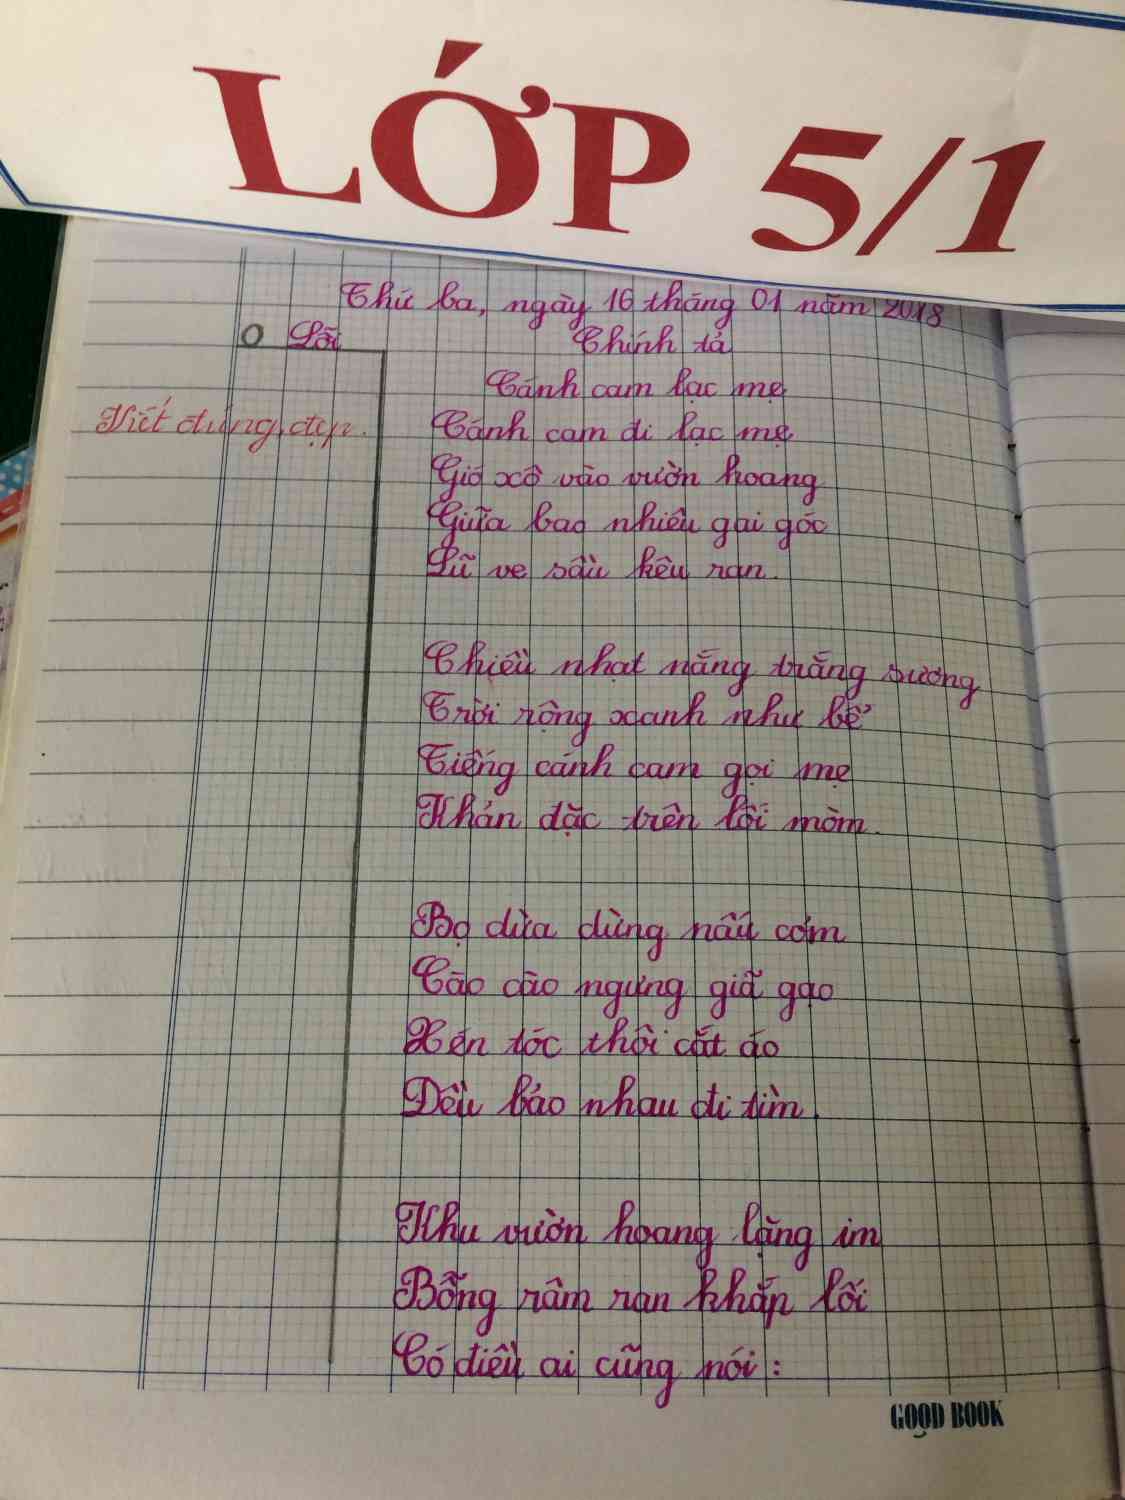 LỚP 5/1
Thứ ba, ngày 16 tháng 01 năm 2018
0 Lỗi
Chính tả
Cánh cam lạc mẹ
Viết đúng, đẹp.
Cánh cam đi lạc mẹ
Gió xô vào vườn hoang
Giữa bao nhiêu gai góc
Lũ ve sầu kêu ran.
Chiều nhạt nắng trắng sương
Trời rộng xanh như bể
Tiếng cánh cam gọi mẹ
Khản đặc trên lối mòm.
Bọ dừa dừng nấu cơm
Cào cào ngưng giã gạo
Xén tóc thôi cắt áo
Đều bảo nhau đi tìm.
Khu vườn hoang lặng im
Bỗng râm ran khắp lối
Có điều ai cũng nói:
GOOD BOOK